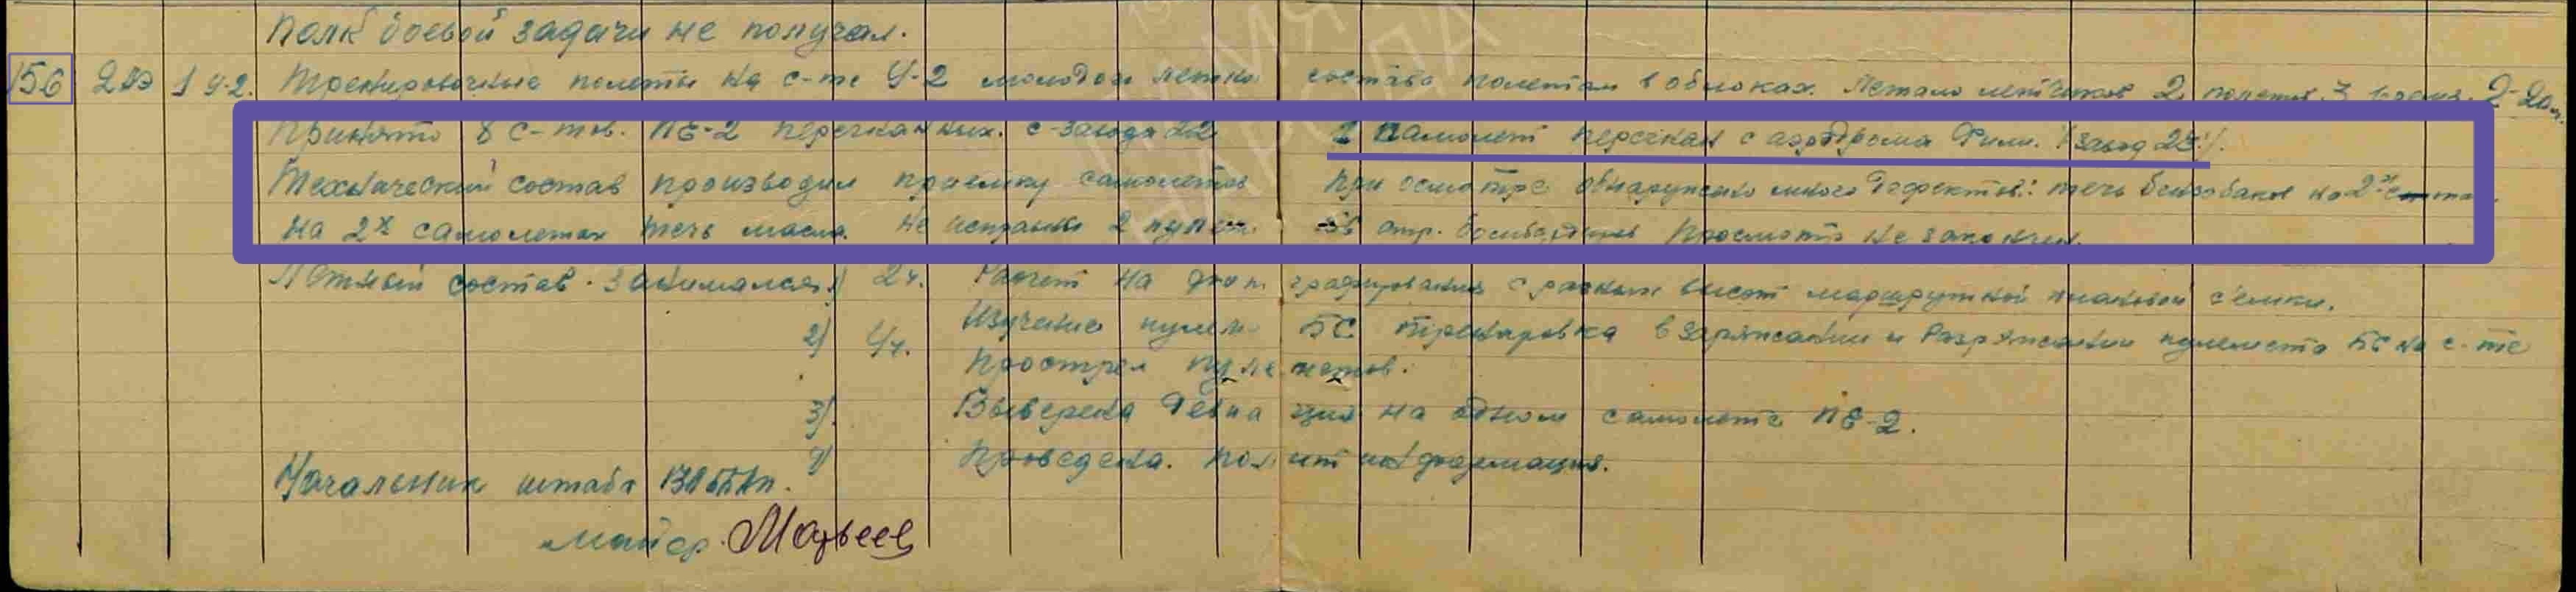 Полк боевой задачи не получал.
156 2АЭ 1 У-2. Тренировочные полеты на с-те У-2 молодого летно состава полетам в облоках. Летало летчиков 2, полетов 3 время 2-20
Принято 8 с-тов. ПЕ-2 перегнанных. с-завода 22 1 самолет перегнан с аэродрома Фили. (завод 23).
Технический состав производил приемку самолетов при осмотре обнаружено много дефектов: течь бензобаков на 2х
На 2х самолетах течь масла. Не исправны 2 пулем. БС стр. Просмотр не закончен.
Летный состав занимался: 1) 2ч. Расчет на фотографирования с разных высот маршрутной плановой с'емки.
2) 4ч. Изучение пулем. БС тренировка в заряжании и разряжании пулемета БС на с-те
Прострел пулеметов.
3) Выверена девиация на одном самолете ПЕ-2.
4) Проведена. политинформация.
Начальник штаба
майор. Матвеев